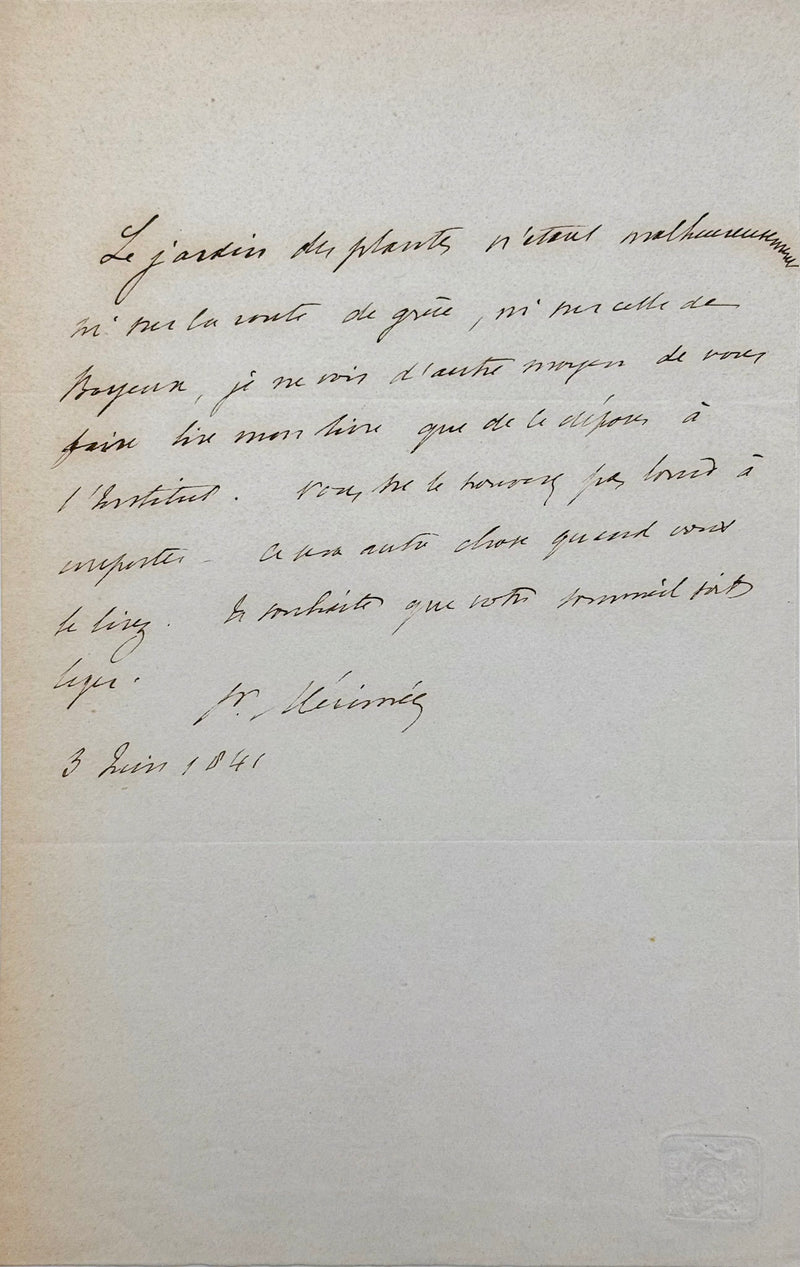 Le jardin des plantes n'étant malheureusement
ni sur la route de grèce, ni sur celle de
Bayeux, je ne vois d'autre moyen de vous
faire lire mon livre que de le déposer à
l'Institut. Vous ne le trouverez pas lourd à
emporter - ce sera autre chose quand vous
le lirez. Je souhaite que votre sommeil soit
leger.
Pr. Mérimée
3 Juin 1841